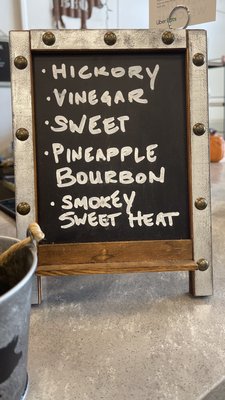 Uber Eats
· HICKORY
· VINEGAR
· SWEET
· PINEAPPLE
BOURBON
· SMOKEY
SWEET HEAT